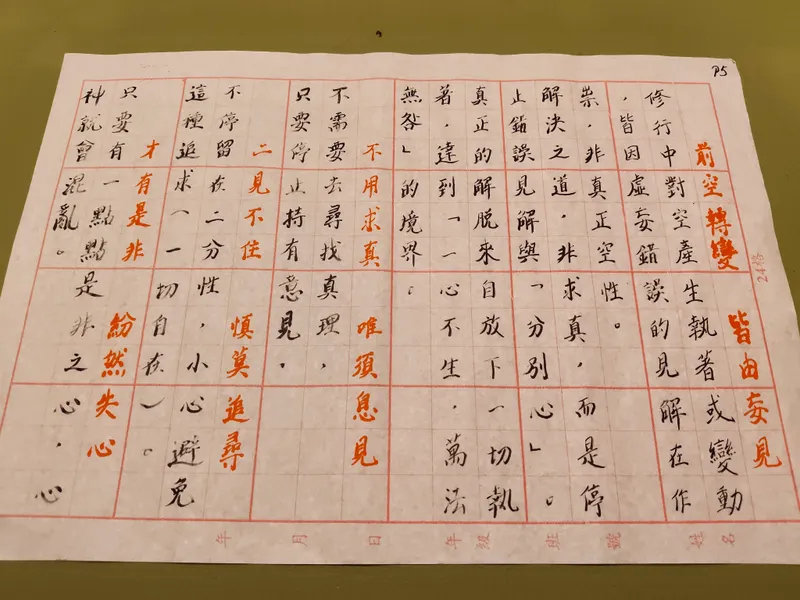 P5
前空轉變 皆由妄見
修行中對空產生執著或變動
，皆因虛妄錯誤的見解在作
祟，非真正空性。
解決之道，非求真，而是停
止錯誤見解與「分別心」。
真正的解脫來自放下一切執
著，達到「一心不生，萬法
無咎」的境界。
不用求真 唯須息見
不需要去尋找真理，
只要停止持有意見，
二見不住 慎莫追尋
不停留在二分性，小心避免
這種追求（一切自在）。
才有是非 紛然失心
只要有一點點是非之心，心
神就會混亂。
24格
年 月 日 年級 班 號 姓名